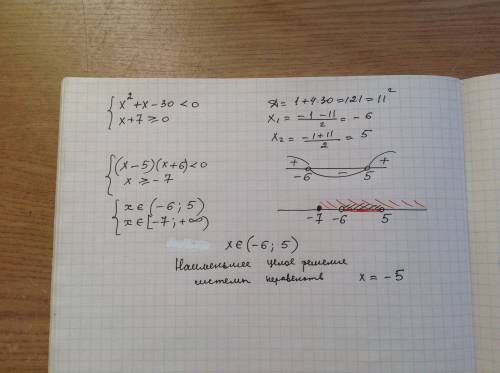 { x² + x − 30 < 0
{ x + 7 ≥ 0
Д = 1 + 4·30 = 121 = 11²
x₁ = (−1 − 11)/2 = −6
x₂ = (−1 + 11)/2 = 5
{ (x − 5)(x + 6) < 0
{ x ≥ −7
+ − +
−6 5
{ x ∈ (−6; 5)
{ x ∈ [−7; +∞)
−7 −6 5
x ∈ (−6; 5)
Наименьшее целое решение
системы неравенств x = −5